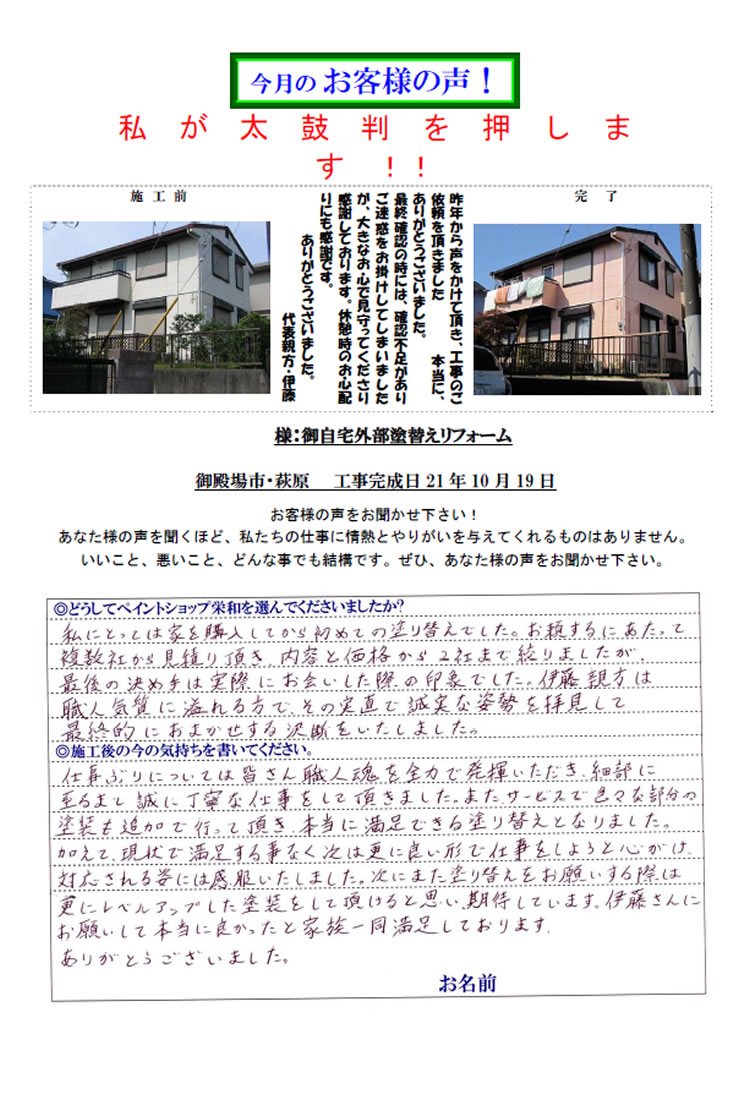 今月の お客様の声！
私が太鼓判を押しま
す!!
施工前
完了
昨年から声をかけて頂き、工事のご
依頼を頂きました　　本当に、
ありがとうございました。
最終確認の時には、確認不足があり
ご迷惑をお掛けしてしまいました
が、大きなお心で見守ってくださり
感謝しております。休憩時のお心配
りにも感謝です。
ありがとうございました。
代表親方・伊藤
様：御自宅外部塗替えリフォーム
御殿場市・萩原　工事完成日 21 年 10 月 19 日
お客様の声をお聞かせ下さい！
あなた様の声を聞くほど、私たちの仕事に情熱とやりがいを与えてくれるものはありません。
いいこと、悪いこと、どんな事でも結構です。ぜひ、あなた様の声をお聞かせ下さい。
◎どうしてペイントショップ栄和を選んでくださいましたか？
私にとっては家を購入してから初めての塗り替えでした。お頼するにあたって
複数社から見積り頂き、内容と価格から2社まで絞りましたが、
最後の決め手は実際にお会いした際の印象でした。伊藤親方は
職人気質に溢れる方で、その実直で誠実な姿勢を拝見して
最終的におまかせする決断をいたしました。
◎施工後の今の気持ちを書いてください。
仕事ぶりについては皆さん職人魂を全力で発揮いただき、細部に
至るまで誠に丁寧な仕事をして頂きました。また、サービスで色々な部分の
塗装も追加で行って頂き、本当に満足できる塗り替えとなりました。
加えて、現状で満足する事なく次は更に良い形で仕事をしようと心がけ、
対応される姿には感服いたしました。次にまた塗り替えをお願いする際は
更にレベルアップした塗装をして頂けると思い、期待しています。伊藤さんに
お願いして本当に良かったと家族一同満足しております。
ありがとうございました。
お名前